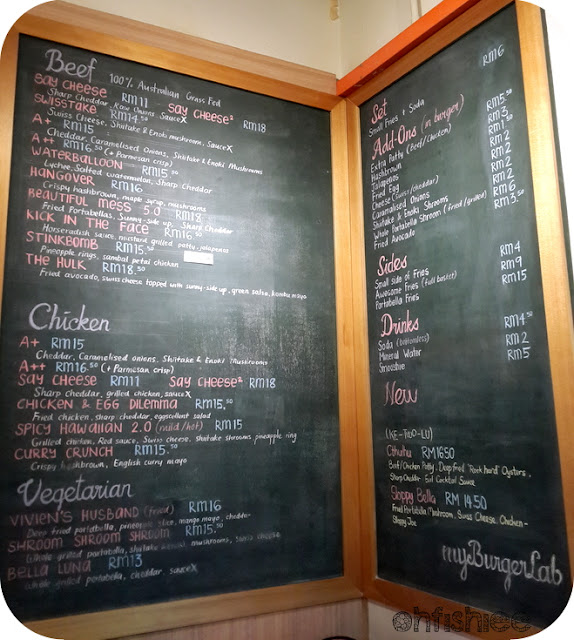 Beef 100% Australian Grass Fed
SAY CHEESE RM11 SAY CHEESE² RM18
Sharp Cheddar, Raw Onions, SauceX
SWISSTAKE RM14.50
Swiss Cheese, Shiitake & Enoki mushroom, SauceX
A+ RM15
Cheddar, Caramelised Onions, Shiitake & Enoki Mushrooms
A++ RM16.50 (+ Parmesan crisp)
WATERBALLOON RM15.50
Lychee, Salted watermelon, Sharp Cheddar
HANGOVER RM16
Crispy hashbrown, maple syrup, mushrooms
BEAUTIFUL MESS 5.0 RM18
Fried Portabellas, Sunny-side up, Sharp Cheddar
KICK IN THE FACE RM16.50
Horseradish sauce, mustard grilled patty, jalapenos
STINKBOMB RM15.50
Pineapple rings, sambal petai chicken
THE HULK RM18.50
Fried avocado, swiss cheese topped with sunny-side up, green salsa, kombu mayo
Chicken
A+ RM15
Cheddar, Caramelised onions, Shiitake & Enoki Mushrooms
A++ RM16.50 (+ Parmesan crisp)
SAY CHEESE RM11 SAY CHEESE² RM18
Sharp cheddar, grilled chicken, sauceX
CHICKEN & EGG DILEMMA RM15.50
Fried chicken, sharp cheddar, eggscellent salad
SPICY HAWAIIAN 2.0 (mild/hot) RM15
Grilled chicken, Red sauce, Swiss cheese, shiitake shrooms, pineapple ring
CURRY CRUNCH RM15.50
Crispy hashbrown, English curry mayo
Vegetarian
VIVIEN'S HUSBAND (fried) RM16
Deep fried portabella, pineapple slice, mango mayo, cheddar
SHROOM SHROOM SHROOM RM15.50
Whole grilled portabella, shiitake & enoki mushrooms, swiss cheese
BELLA LUNA RM13
Whole grilled portabella, cheddar, sauceX
Set RM6
Small Fries + Soda
Add-Ons (in burger)
Extra Patty (Beef/Chicken) RM5.50
Hashbrown RM3
Jalapenos RM1.50
Fried Egg RM2
Cheese (swiss/cheddar) RM2
Caramelised Onions RM2
Shiitake & Enoki Shrooms RM2
Whole Portabella Shroom (fried/grilled) RM6
Fried Avocado RM3.50
Sides
Small side of Fries RM4
Awesome Fries (full basket) RM9
Portabella Fries RM15
Drinks
Soda (bottomless) RM4.50
Mineral Water RM2
Smoothie RM5
New
(KE-TWO-LU)
Cthulhu RM16.50
Beef/Chicken Patty, Deep fried "Rock hard" Oysters,
Sharp Cheddar, Evil Cocktail Sauce
Sloppy Bella RM 14.50
Fried Portabella Mushroom, Swiss Cheese, Chicken-
Sloppy Joe
myBurgerLab
ohfishiee